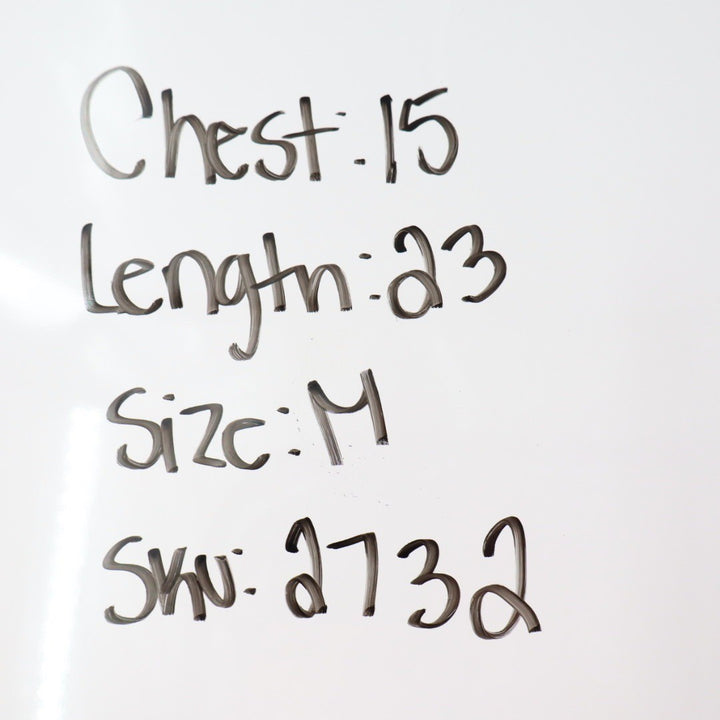 Chest: 15
Length: 23
Size: M
Sku: 2732